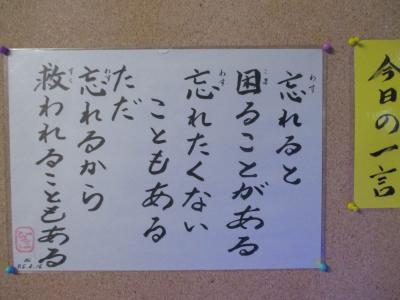 今日の一言
忘れると
困ることがある
忘れたくない
こともある
ただ
忘れるから
救われることもある
わす
こま
わす
わす
すく